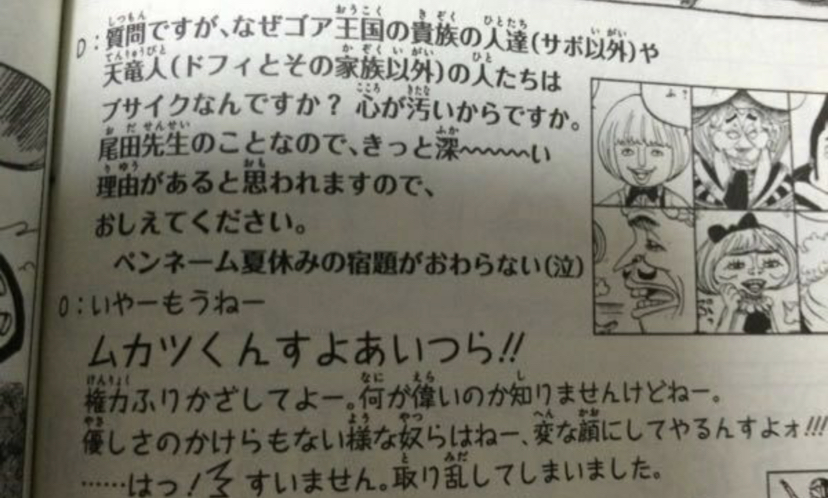 D：質問ですが、なぜゴア王国の貴族の人達(サボ以外)や
天竜人(ドフィとその家族以外)の人たちは
ブサイクなんですか？ 心が汚いからですか。
尾田先生のことなので、きっと深〜〜〜〜〜い
理由があると思われますので、
おしえてください。
ペンネーム夏休みの宿題がおわらない(泣)
O：いやーもうねー
ムカツくんすよあいつら!!
権力ふりかざしてよー。何が偉いのか知りませんけどねー。
優しさのかけらもない様な奴らはねー、変な顔にしてやるんすよォ!!!
……はっ！すいません。取り乱してしまいました。